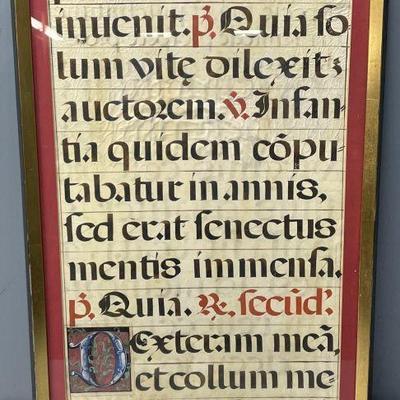 inuenit. p̃. Quia ſo
lum vitę dilexit
auctorem. ṽ. Infan-
tia quidem cõpu
tabatur in annis,
ſed erat ſenectus
mentis immenſa.
p̃. Quia. R. ſecũd'.
Dexteram meã,
et collum me-